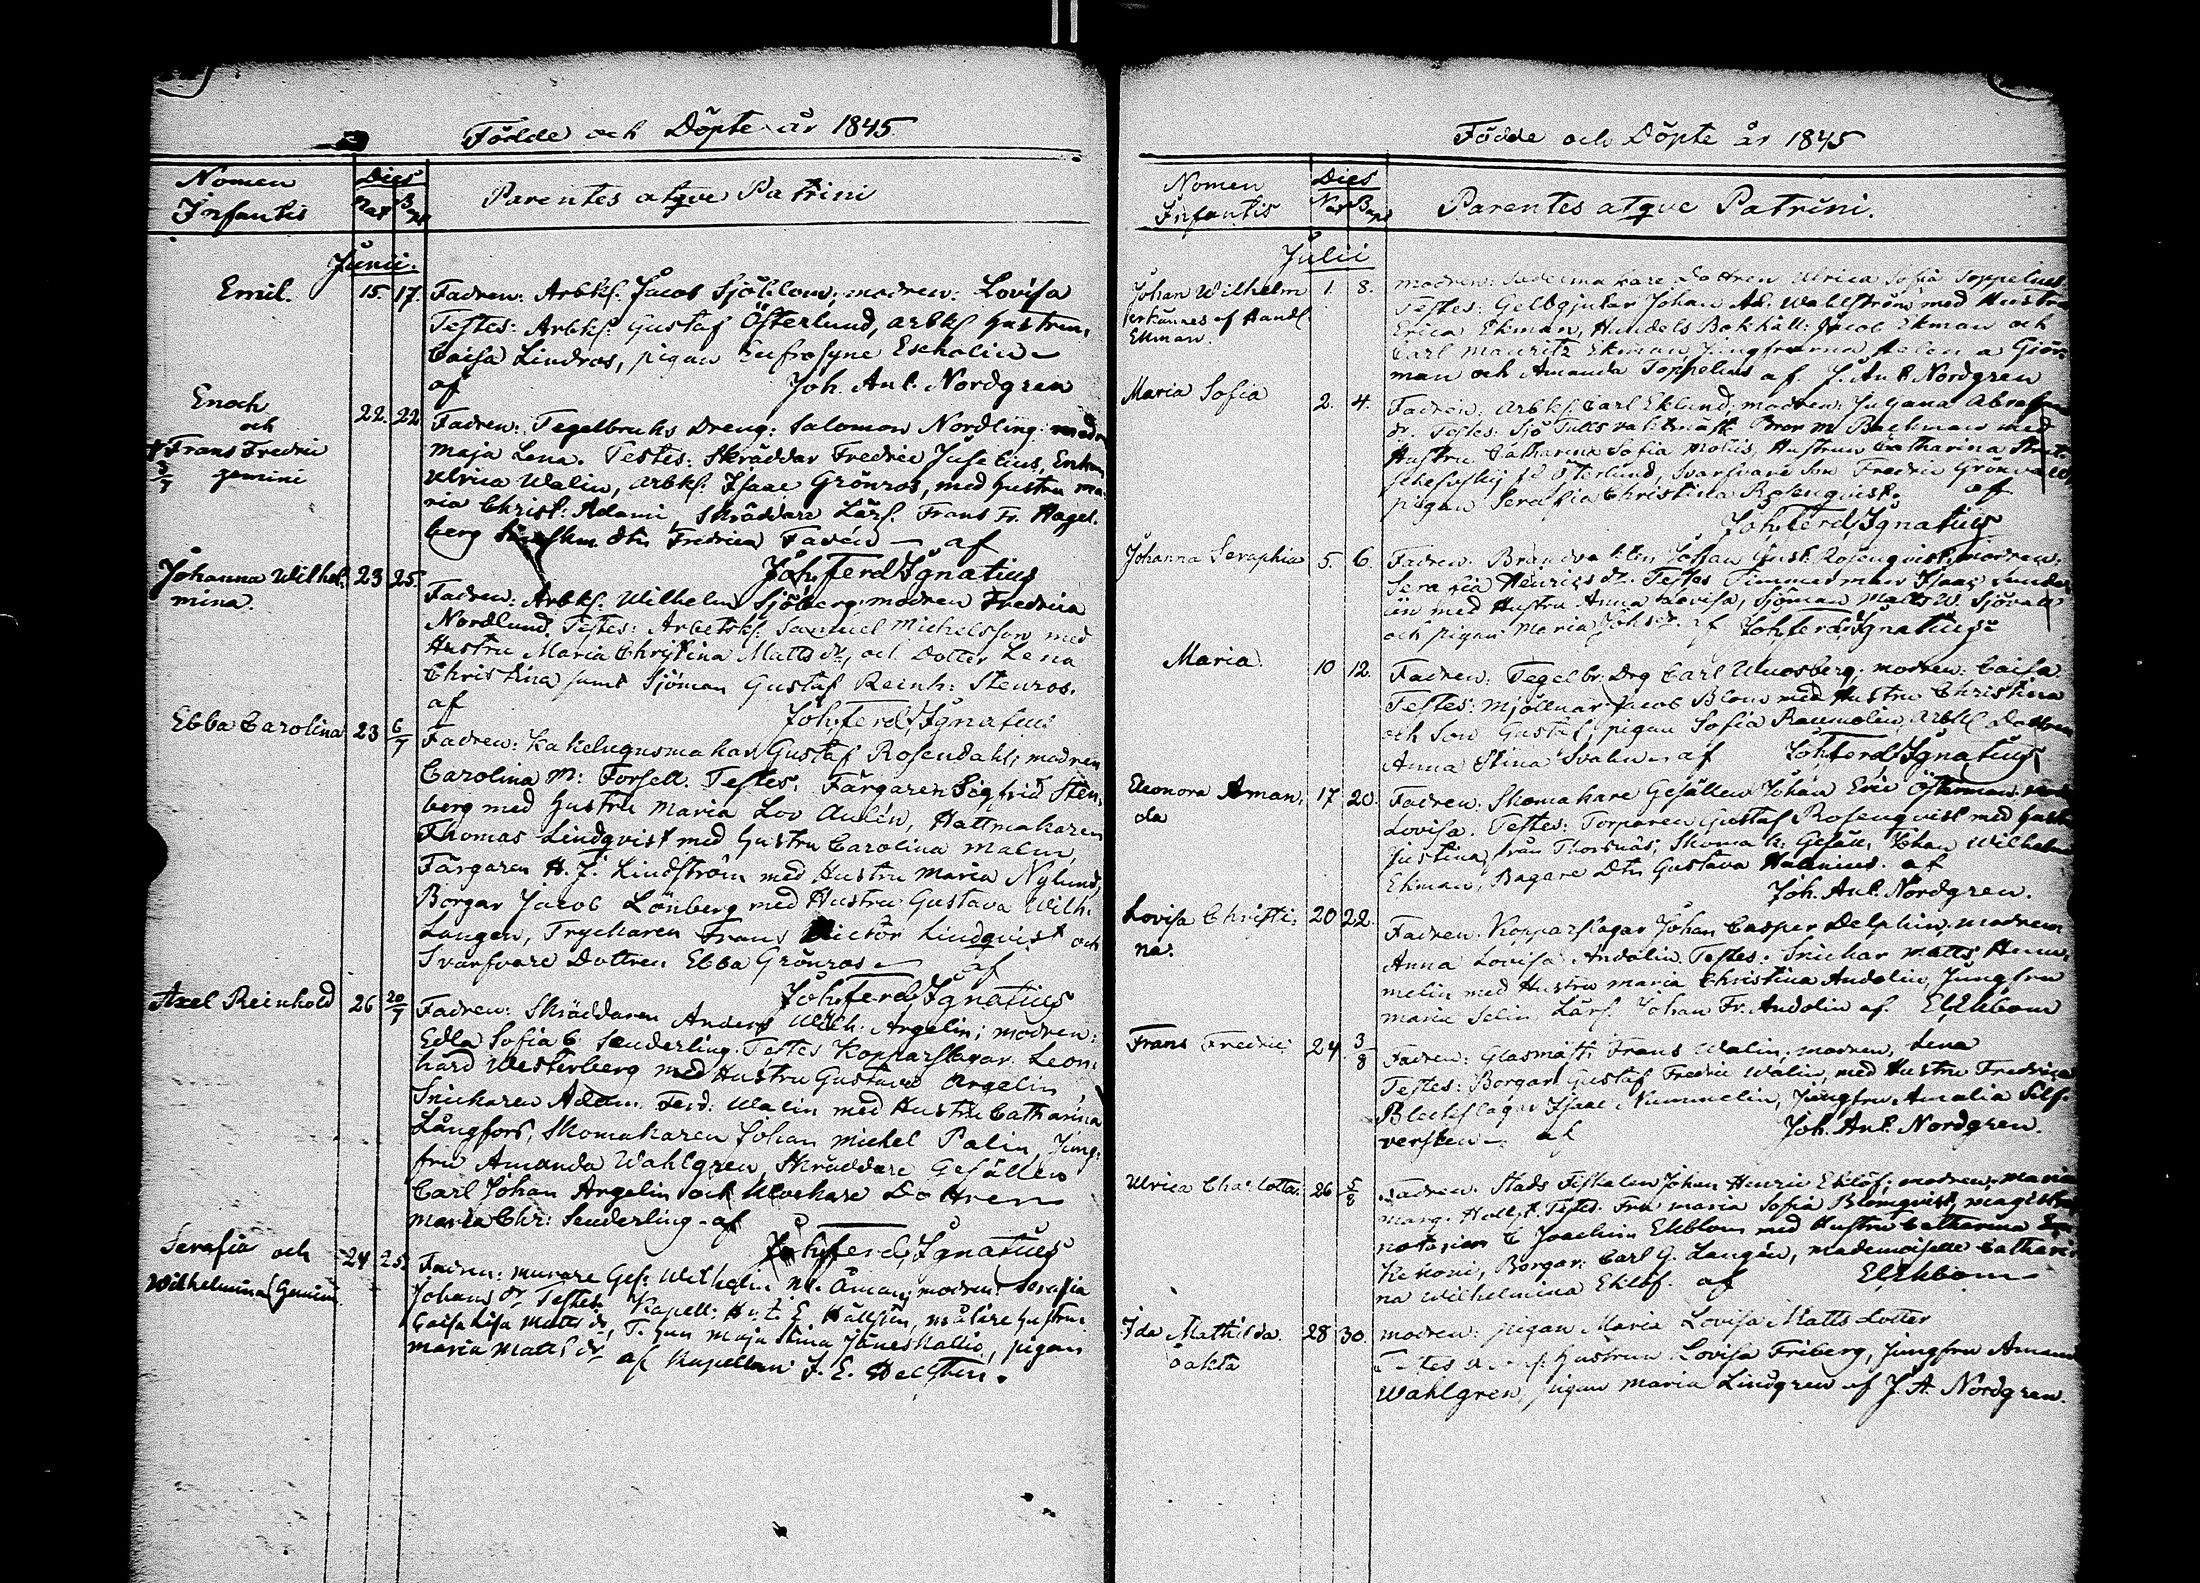 Födde och Döpte år 1845
Nomen Infantis
Dies
Nat Bapt
Parentes atqve Patrini
Junii.
Emil. 15. 17. Fadren: Arbks. Jacob Sjöblom; modren: Lovisa
Testes: Arbks. Gustaf Österlund, arbks hustrun,
Caisa Lindros, pigan Eufrosyne Escholin
af Joh. Ant. Nordgren
Enoch och † Frans Fredric gemini 3/7
22. 22 Fadren: Tegelbruks Dreng: Salomon Nordling: modr
Maja Lena. Testes: Skräddar Fredric Juselius, Enkan
Ulrica Walin, arbks. Isaac Grönros, med hustru Ma-
ria Christ: Adami, Skräddare Lärl. Frans Fr. Hagel-
berg dtr Fredrica Fadén af
Joh. Ferd. Ignatius
Johanna Wilhel-
mina. 23 25. Fadren: Arbks. Wilhelm Sjöberg; modren Fredrica
Nordlund. Testes: Arbetsk. Samuel Michelsson med
Hustru Maria Christina Matts dr, och Dotter Lena
Christina samt Sjöman Gustaf Reinh: Stenros.
af Joh. Ferd. Ignatius
Ebba Carolina 23 6/7 Fadren: Kakelugnsmakar Gustaf Rosendahl; modren
Carolina M: Forsell. Testes: Färgaren Sigfrid Sten-
berg med hustru Maria Lov Aulén, Hattmakaren
Thomas Lindqvist med hustru Carolina Malm,
Färgaren H. J. Lindström med Hustru Maria Nylund,
Borgar Jacob Lönberg med Hustru Gustava Wilh:
Langen, Tryckaren Frans Victor Lindqvist och
Svarfvare Dottren Ebba Grönros af
Joh. Ferd. Ignatius
Axel Reinhold 26 20/7 Fadren: Skräddaren Anders Wilh: Argelin; modren:
Edla Sofia C. Senderling. Testes Kopparslagar Leon-
hard Westerberg med Hustru Gustava Argelin,
Snickaren Adam Ferd: Walin med Hustru Catharina
Långfors, Skomakaren Johan Michel Palin, Jung-
fru Amanda Wahlgren, Skräddare Gesällen
Carl Johan Argelin och Dottren
Maria Chr: Senderling. af
Joh. Ferd. Ignatius
Serafia och
Wilhelmina (Gemini 24 25. Fadren: Murare Ges: Wilhelm M. Åman; modren: Serafia
Johans dr Testes Kapell: J. E. Hällsten, målare hustru
Caisa Lisa Matts dr, Maja Stina Jäneskallio, pigan
Maria Matts dr af Kapellan J. E. Hellsten.
Födde och Döpte år 1845
Nomen Infantis
Dies
Nat Bapt
Parentes atqve Patrini.
Julii
Johan Wilhelm
erkännes af Handl.
Ekman. 1. 8. modren: Sadelmakare Dottren Ulrica Sofia Toppelius
Testes: Gelbgjutar Johan Ad. Wallström med Hustru
Erica Ekman, Handels Bokhåll: Jacob Ekman och
Carl Mauritz Ekman, Jungfrurna Helena Giör-
man och Amanda Toppelius af J. Ant. Nordgren
Maria Sofia 2. 4. Fadren: Arbks. Carl Eklund; modren: Juliana Abrahams
dr. Testes: Sjö Tulls vaktmäst Bror M Backman med
Hustru Catharina Sofia Molis, Hustrun Catharina
fd Österlund, Svarfvare Son Fredric Grönvall,
pigan Serafia Christina Rosenqvist. af
Joh. Ferd. Ignatius
Johanna Seraphia 5. 6. Fadren: Brandvakten Johan Gust. Rosenqvist; modren:
Serafia Henrics dr. Testes Timmerman Isaac Sunde-
én med Hustru Anna Lovisa, Sjöman Matts W. Sjövall
och pigan Maria Johs dr. af Joh. Ferd. Ignatius
Maria. 10 12. Fadren: Tegelbr: Drg Carl Wuosberg; modren: Caisa
Testes: Mjölnar Jacob Blom med Hustru Christina
och Son Gustaf; pigan Sofia Raumolin, Arbks Dottren
Anna Stina Svahn af Joh. Ferd. Ignatius,
Eleonora Aman-
da 17 20. Fadren: Skomakare Gesällen Johan Eric Österman
Lovisa. Testes: Torparen Gustaf Rosenqvist med hustr
Justina, från Thorsnäs, Skomak: Gesäll: Johan Wilhelm
Ekman, Bagare Dtr Gustava Hälenius. af
Joh. Ant. Nordgren.
Lovisa Christi-
na. 20 22. Fadren: Kopparslagar Johan Casper Delphin; modren
Anna Lovisa Andelin. Testes: Snickar Matts Hum-
melin med Hustru Maria Christina Andelin, Jungfru
Maria Selin, Lärl. Johan Fr. Andelin af. Elfkbom
Frans Fredric 24. 3/8 Fadren: Glasmäst: Frans Walin; modren, Lena
Testes: Borgar Gustaf Fredric Walin, med Hustru Fredrica
Bleckslagar Isaac Nummelin, Jungfru Amalia Silf-
versten af Joh. Ant. Nordgren.
Ulrica Charlotta. 26 5/8 Fadren: Stads Fiskalen Johan Henric Eklöf; modren: Maria
Marg. Hollst. Testes. Fru Maria Sofia Blomqvist, Magistrat
notarien C Joachim Ekblom med Hustru Catharina
Kekoni, Borgar Carl G. Langén, Mademoiselle Cathari-
na Wilhelmina Eklöf. af
Ida Mathilda
oäkta 28 30. modren: pigan Maria Lovisa Matts Dotter
Testes Hustrun Lovisa Friberg, Jungfru Amand
Wahlgren, pigan Maria Lindgren af J. A. Nordgren.